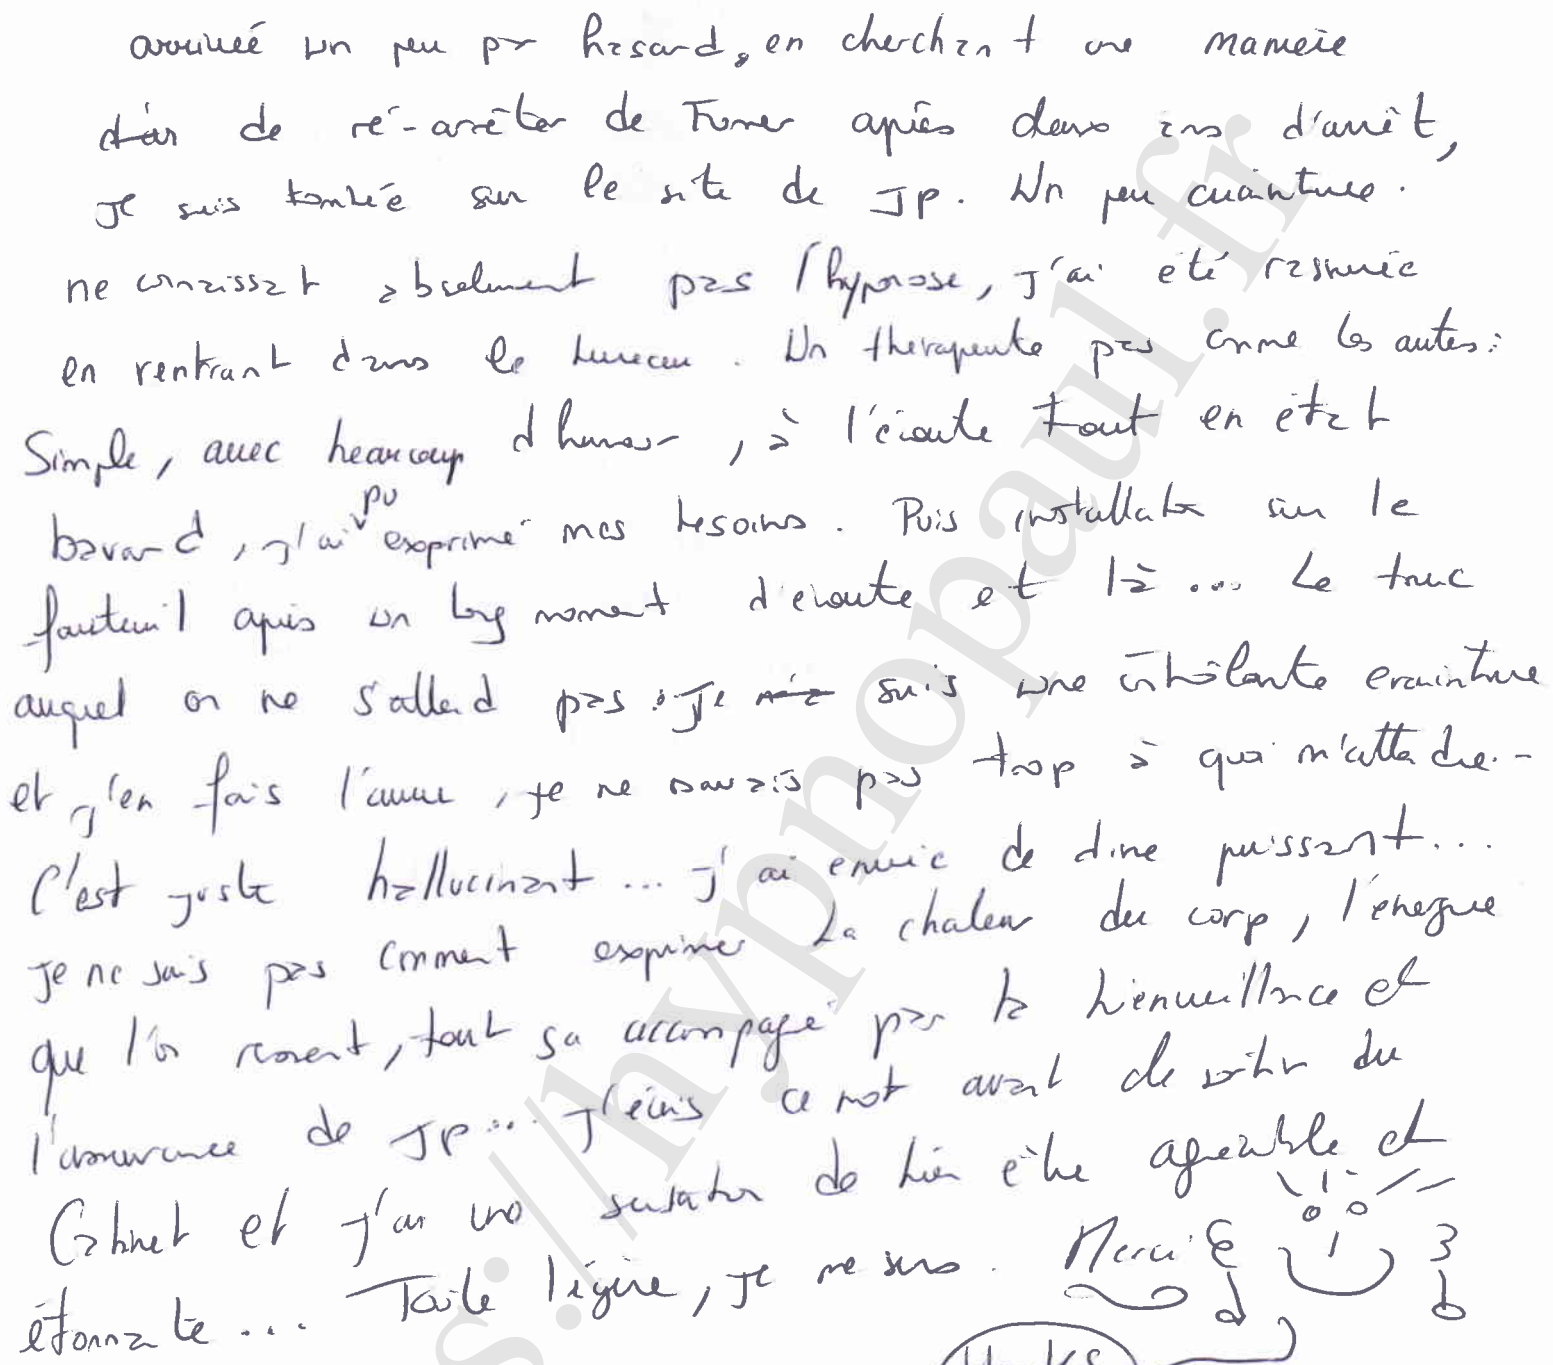 arrivée un peu par hasard, en cherchant une manière
d'ar de ré-arrêter de Fumer après deux ans d'arrêt,
Je suis tombée sur le site de JP. Un peu craintive.
ne connaissat absolument pas l'hypnose, J'ai été rassurée
en rentrant dans le bureau. Un thérapeute pas comme les autres :
Simple, avec beaucoup d'humour, à l'écoute tout en état
bavard, j'ai pu exprimé mes besoins. Puis installation sur le
fauteuil après un long moment d'écoute et là ... Le truc
auquel on ne s'attend pas : Je suis une craintive
et j'en fais l'aveu, je ne savais pas trop à quoi m'attendre. -
C'est juste hallucinant ... J'ai envie de dire puissant ...
Je ne sais pas comment exprimer La chaleur du corp, l'énergie
que l'on ressent, tout sa accompagé par la bienveillance et
l'assurance de JP ... J'écris ce mot avant de sortir du
Cabinet et j'ai une sensation de bien être agréable et
étonnante ... Toute légère, je me sens. Merci
Thanks
https://hypnopaul.fr